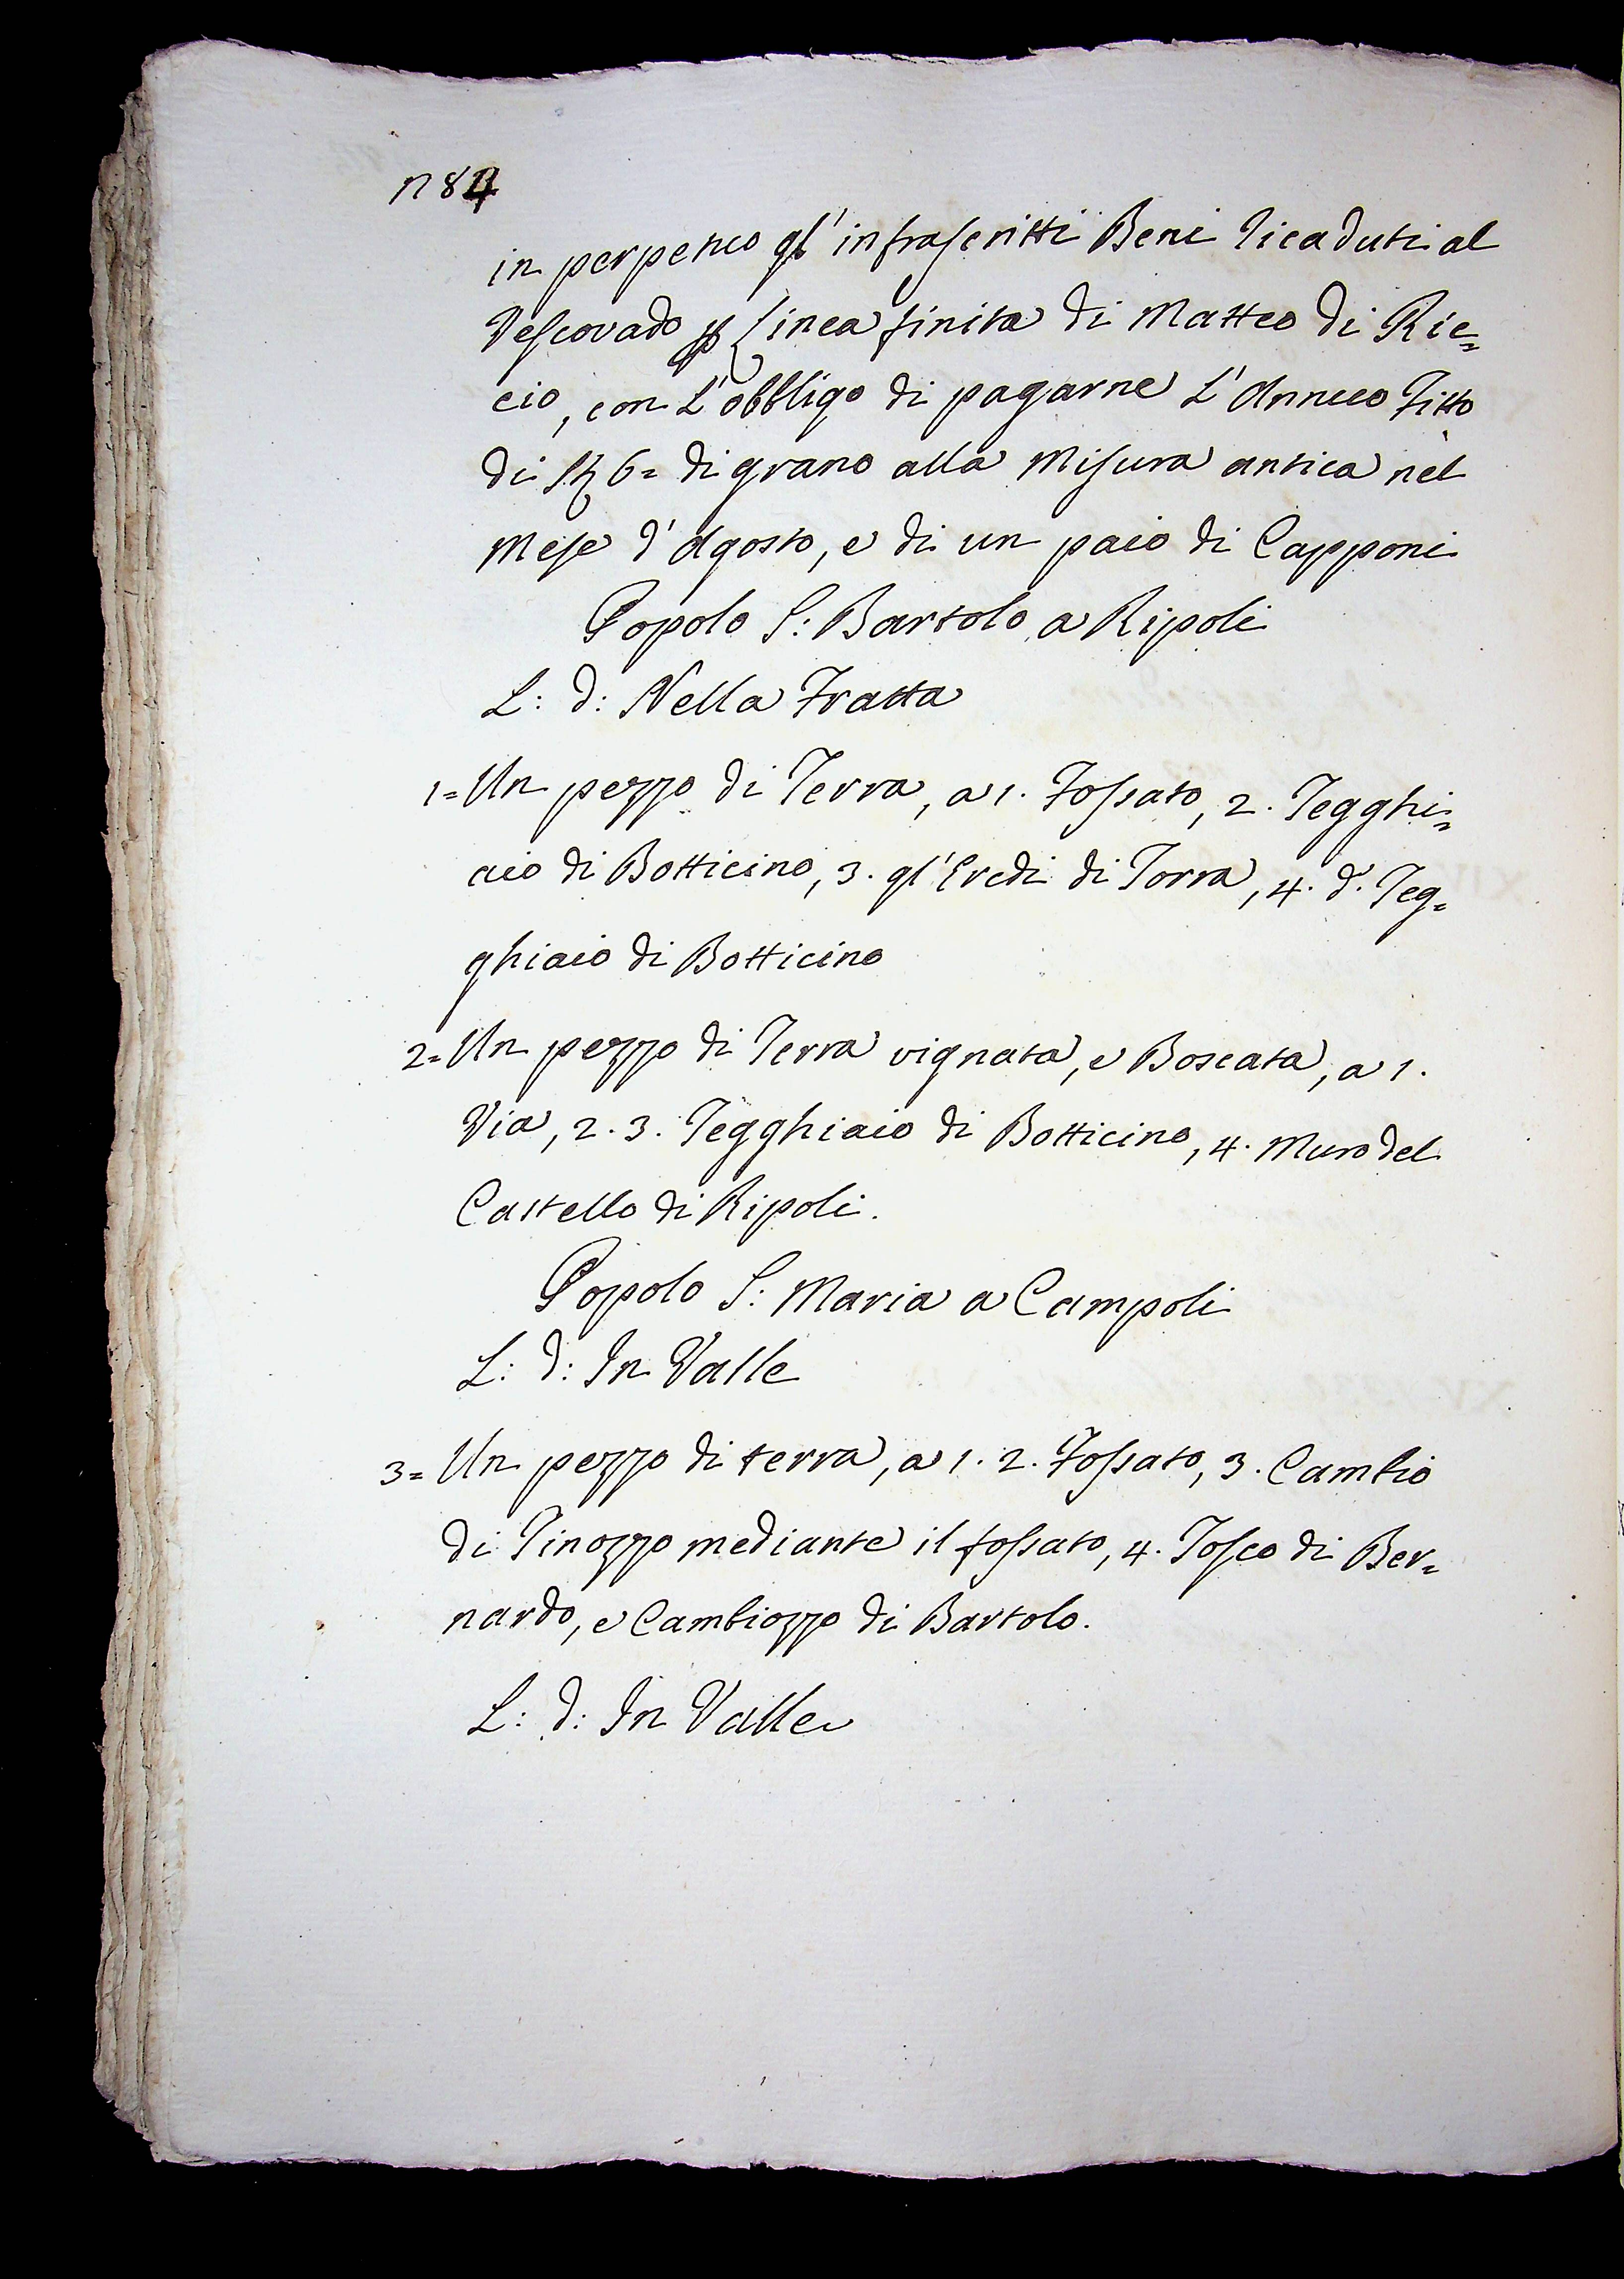 n 84
in perpetuo gl' infrascritti Beni ricaduti al
Vescovado p linea finita di Matteo di Ric=
cio, con L'obbligo di pagarne L'Annuo Fitto
di st 6= di grano alla Misura antica nel
Mese d'Agosto, e di un paio di Capponi
Popolo S: Bartolo a Ripoli
L: d: Nella Fratta
1= Un pezzo di Terra, a 1. Fossato, 2. Tegghi=
aio di Botticino, 3. gl'Eredi di Torra, 4. d.° Teg=
ghiaio di Botticino
2= Un pezzo di Terra vignata, e Boscata, a 1.
Via, 2. 3. Tegghiaio di Botticino, 4. Muro del
Castello di Ripoli.
Popolo S: Maria a Campoli
L: d: In Valle
3= Un pezzo di terra, a 1. 2. Fossato, 3. Cambio
di Pinozzo mediante il fossato, 4. Tosco di Ber=
nardo, e Cambiozzo di Bartolo.
L: d: In Valle